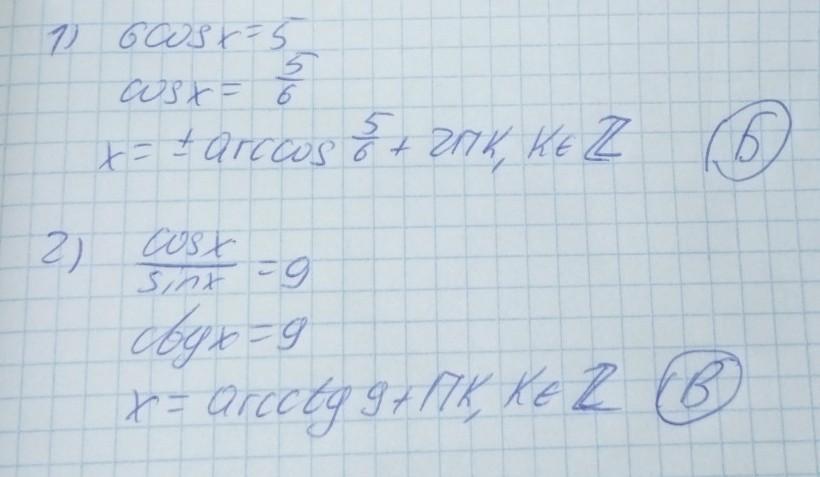 1) 6cosx=5
cosx= 5/6
x= ±arccos 5/6 + 2πk, k∈ℤ Б
2) cosx/sinx =9
ctgx=9
x= arcctg 9+πk, k∈ℤ В